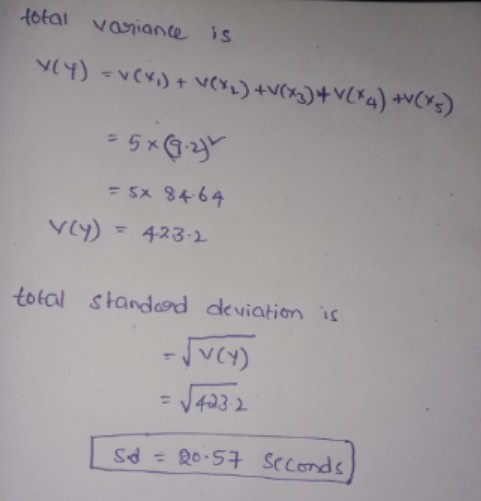 total variance is
V(Y) = V(X₁) + V(X₂) + V(X₃) + V(X₄) + V(X₅)
= 5 × (9.2)²
= 5 × 84.64
V(Y) = 423.2
total standard deviation is
= √V(Y)
= √423.2
Sd = 20.57 seconds